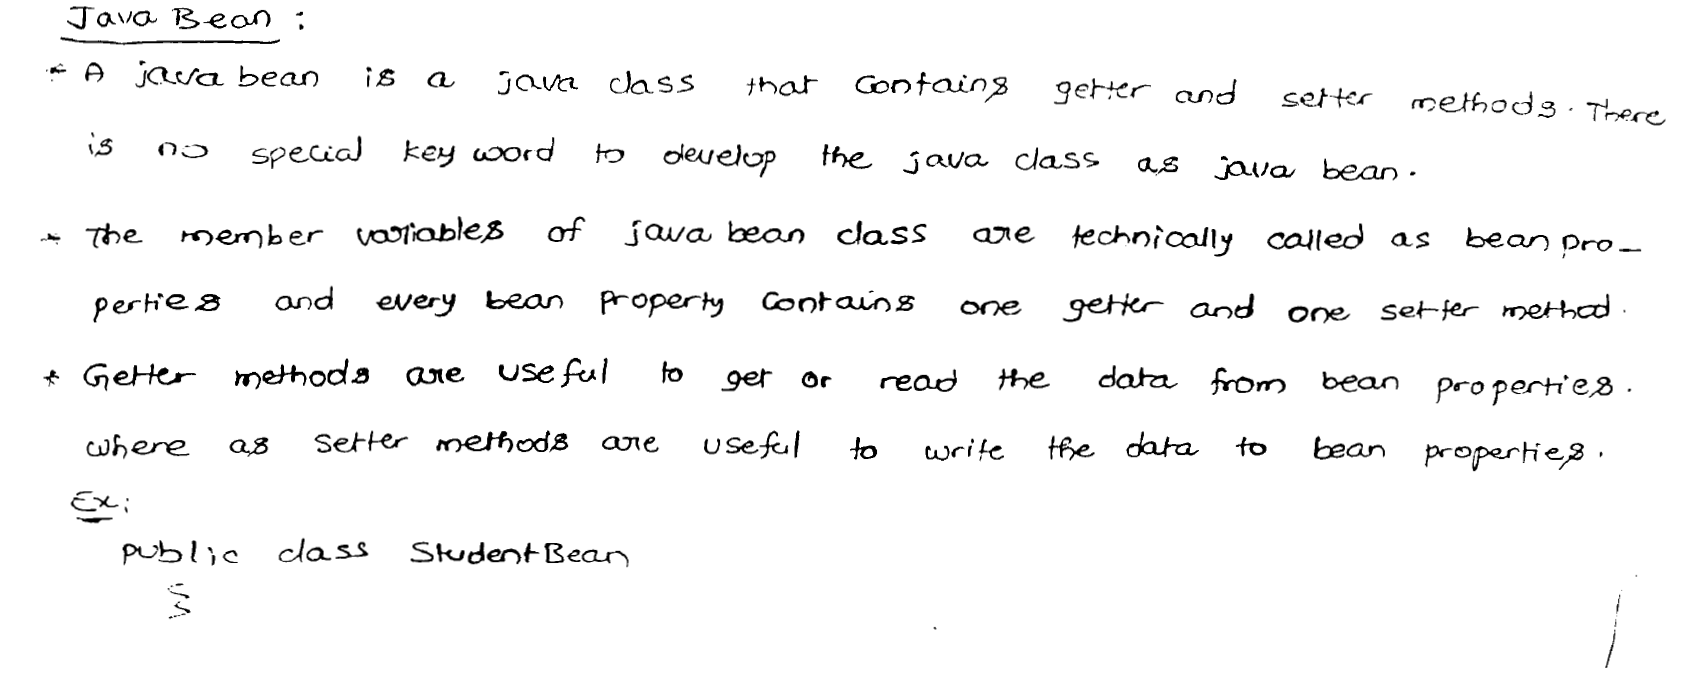 Java Bean :
* A java bean is a java class that contains getter and setter methods. There
is no special key word to develop the java class as java bean.
* The member variables of java bean class are technically called as bean pro-
perties and every bean property contains one getter and one setter method.
* Getter methods are useful to get or read the data from bean properties.
where as setter methods are useful to write the data to bean properties.
Ex:
public class StudentBean
{